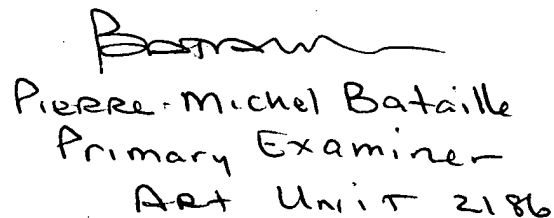 Pierre-Michel Bataille
Primary Examiner
Art Unit 2186